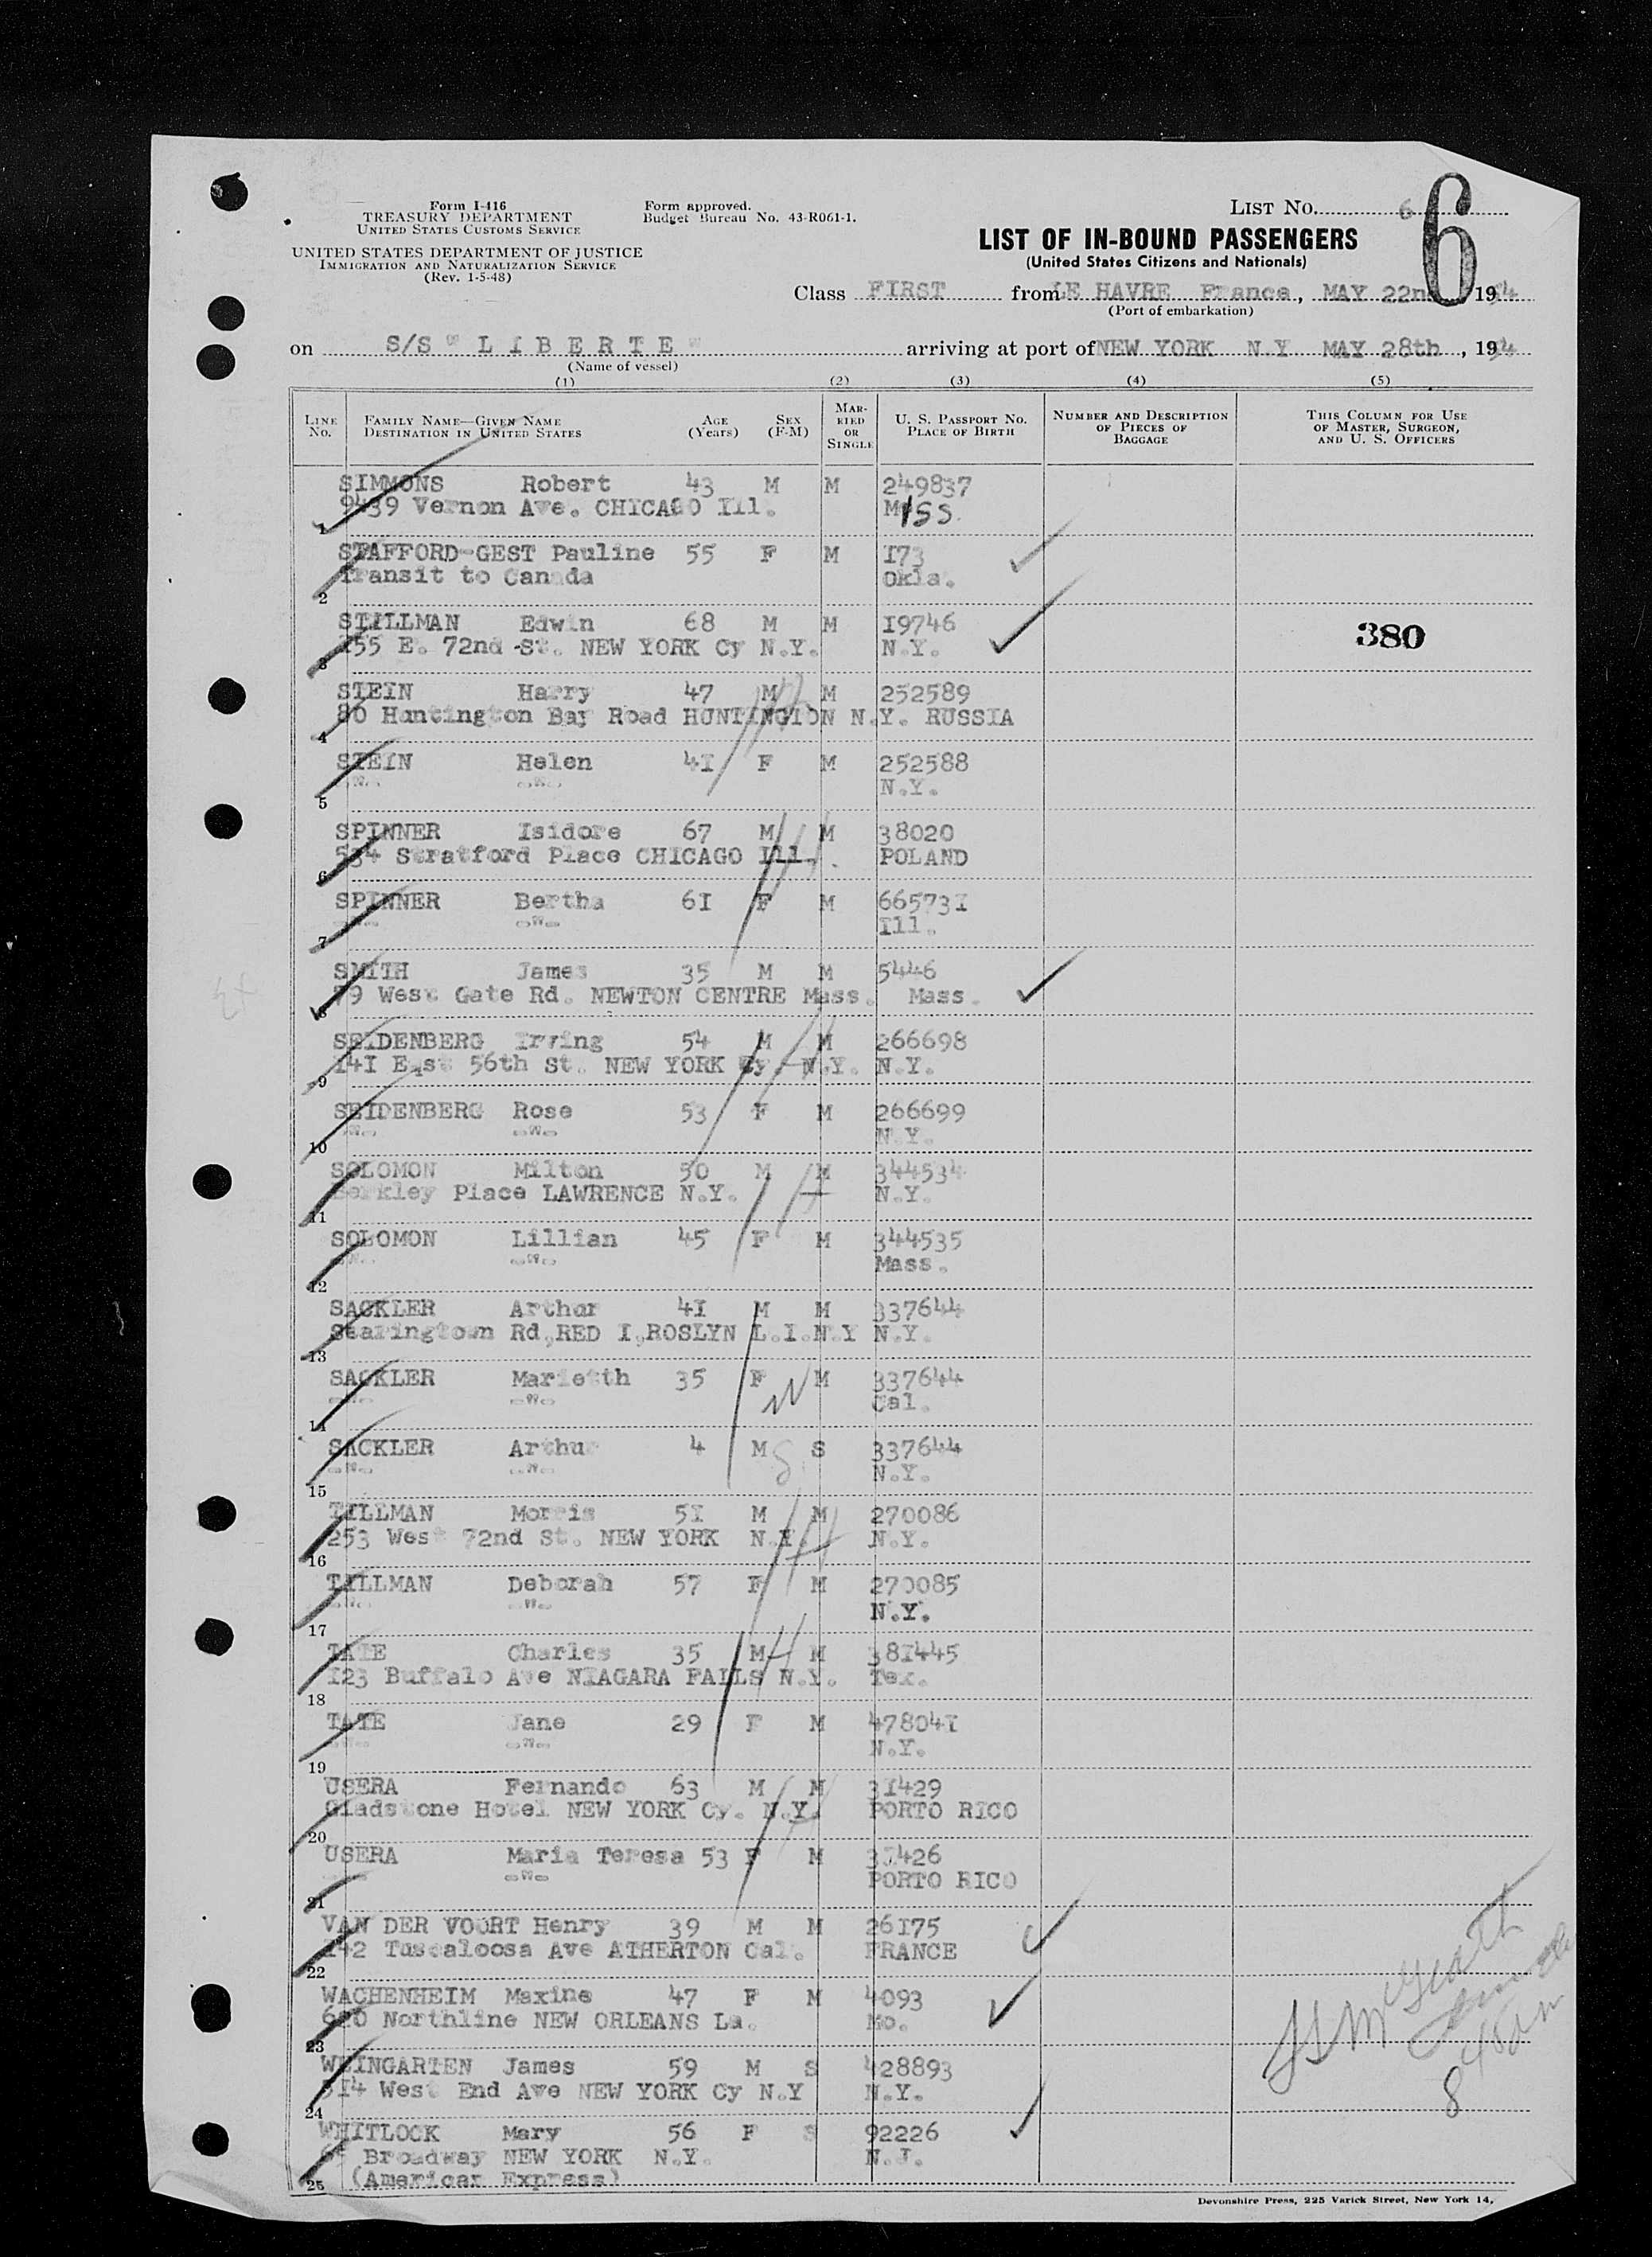 Form I-416
TREASURY DEPARTMENT
UNITED STATES CUSTOMS SERVICE
UNITED STATES DEPARTMENT OF JUSTICE
IMMIGRATION AND NATURALIZATION SERVICE
(Rev. 1-5-48)
Form approved.
Budget Bureau No. 43-R061-1.
LIST NO. 6
6
LIST OF IN-BOUND PASSENGERS
(United States Citizens and Nationals)
Class FIRST from LE HAVRE France, MAY 22n 1954
(Port of embarkation)
on S/S " L I B E R T E " arriving at port of NEW YORK N.Y. MAY 28th, 1954
(Name of vessel)
(1) (2) (3) (4) (5)
LINE NO. FAMILY NAME—GIVEN NAME DESTINATION IN UNITED STATES AGE (Years) SEX (F-M) MARRIED OR SINGLE U. S. PASSPORT NO. PLACE OF BIRTH NUMBER AND DESCRIPTION OF PIECES OF BAGGAGE THIS COLUMN FOR USE OF MASTER, SURGEON, AND U. S. OFFICERS
SIMMONS Robert 43 M M 249837
1 9439 Vernon Ave. CHICAGO Ill. Miss.
STAFFORD-GEST Pauline 55 F M I73
2 Transit to Canada Okla.
STILLMAN Edwin 68 M M I9746
3 155 E. 72nd St. NEW YORK Cy N.Y. N.Y. 380
STEIN Harry 47 M M 252589
4 80 Huntington Bay Road HUNTINGTON N.Y. RUSSIA
STEIN Helen 4I F M 252588
5 -"- -"- N.Y.
SPINNER Isidore 67 M M 38020
6 534 Stratford Place CHICAGO Ill. POLAND
SPINNER Bertha 6I F M 66573I
7 -"- -"- Ill.
SMITH James 35 M M 5446
8 79 West Gate Rd. NEWTON CENTRE Mass. Mass.
SEIDENBERG Irving 54 M M 266698
9 I4I East 56th St. NEW YORK Cy. N.Y. N.Y.
SEIDENBERG Rose 53 F M 266699
10 -"- -"- N.Y.
SOLOMON Milton 50 M M 344534
11 Berkley Place LAWRENCE N.Y. N.Y.
SOLOMON Lillian 45 F M 344535
12 -"- -"- Mass.
SACKLER Arthur 4I M M 337644
13 Searingtown Rd, RED I, ROSLYN L.I.N.Y N.Y.
SACKLER Marietth 35 F M 337644
14 -"- -"- Cal.
SACKLER Arthur 4 M S 337644
15 -"- -"- N.Y.
TILLMAN Morris 5I M M 270086
16 253 West 72nd St. NEW YORK N.Y. N.Y.
TILLMAN Deborah 57 F M 270085
17 -"- -"- N.Y.
TATE Charles 35 M M 38I445
18 I23 Buffalo Ave NIAGARA FALLS N.Y. Tex.
TATE Jane 29 F M 47804I
19 -"- -"- N.Y.
USERA Fernando 63 M M 3I429
20 Gladstone Hotel NEW YORK Cy. N.Y. PORTO RICO
USERA Maria Teresa 53 F M 3I426
21 -"- PORTO RICO
VAN DER VOORT Henry 39 M M 26I75
22 I42 Tuscaloosa Ave ATHERTON Cal. FRANCE
WACHENHEIM Maxine 47 F M 4093
23 620 Northline NEW ORLEANS La. Mo.
WEINGARTEN James 59 M S 428893
24 3I4 West End Ave NEW YORK Cy N.Y N.Y.
WHITLOCK Mary 56 F S 92226
65 Broadway NEW YORK N.Y. N.J.
25 (American Express)
Devonshire Press, 225 Varick Street, New York 14,